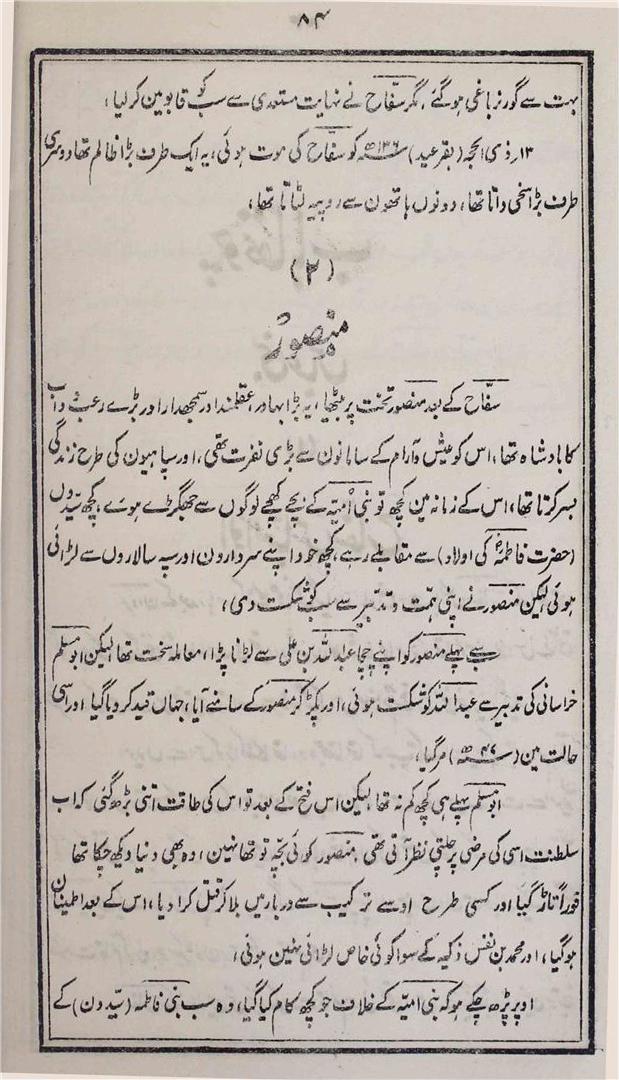 ۸۴
بہت سے گورنر باغی ہو گئے، مگر سفاح نے نہایت مستعدی سے سب کو قابو مین کر لیا،
۱۳ر ذی الحجہ (بقرعید) ۱۳۶ھ کو سفاح کی موت ہوئی، یہ ایک طرف بڑا ظالم تھا دوسری
طرف بڑا سخی داتا تھا، دونوں ہاتھون سے روپیہ لٹاتا تھا،
(۲)
منصور
سفاح کے بعد منصور تخت پر بیٹھا، یہ بڑا بہادر، عقلمند اور سمجھدار اور بڑے رعب داب
کا بادشاہ تھا، اس کو عیش و آرام کے سامانون سے بڑی نفرت تھی، اور سپاہیون کی طرح زندگی
بسر کرتا تھا، اس کے زمانہ مین کچھ تو بنی امیہ کے بچے کھچے لوگوں سے جھگڑے ہوئے، کچھ سیدوں
(حضرت فاطمہؓ کی اولاد) سے مقابلے رہے، کچھ خود اپنے سردارون اور سپہ سالاروں سے لڑائی
ہوئی لیکن منصور نے اپنی ہمت و تدبیر سے سب کو شکست دی،
سب سے پہلے منصور کو اپنے چچا عبد اللہ بن علی سے لڑنا پڑا، معاملہ سخت تھا لیکن ابو مسلم
خراسانی کی تدبیر سے عبد اللہ کو شکست ہوئی، اور پکڑ کر منصور کے سامنے آیا، جہاں قید کر دیا گیا اور اسی
حالت مین (۱۴۷ھ) مر گیا،
ابو مسلم پہلے ہی کچھ کم نہ تھا لیکن اس فتح کے بعد تو اس کی طاقت اتنی بڑھ گئی کہ اب
سلطنت اسی کی مرضی پر چلتی نظر آتی تھی، منصور کوئی بچہ تو تھا نہین، وہ بھی دنیا دیکھ چکا تھا
فوراً تاڑ گیا اور کسی طرح اوسے ترکیب سے دربار میں بلا کر قتل کرا دیا، اس کے بعد اطمینان
ہو گیا، اور محمد بن نفس ذکیہ کے سوا کوئی خاص لڑائی نہین ہوئی،
اوپر پڑھ چکے ہو کہ بنی امیہ کے خلاف جو کچھ کام کیا گیا، وہ سب بنی فاطمہ (سیدون) کے